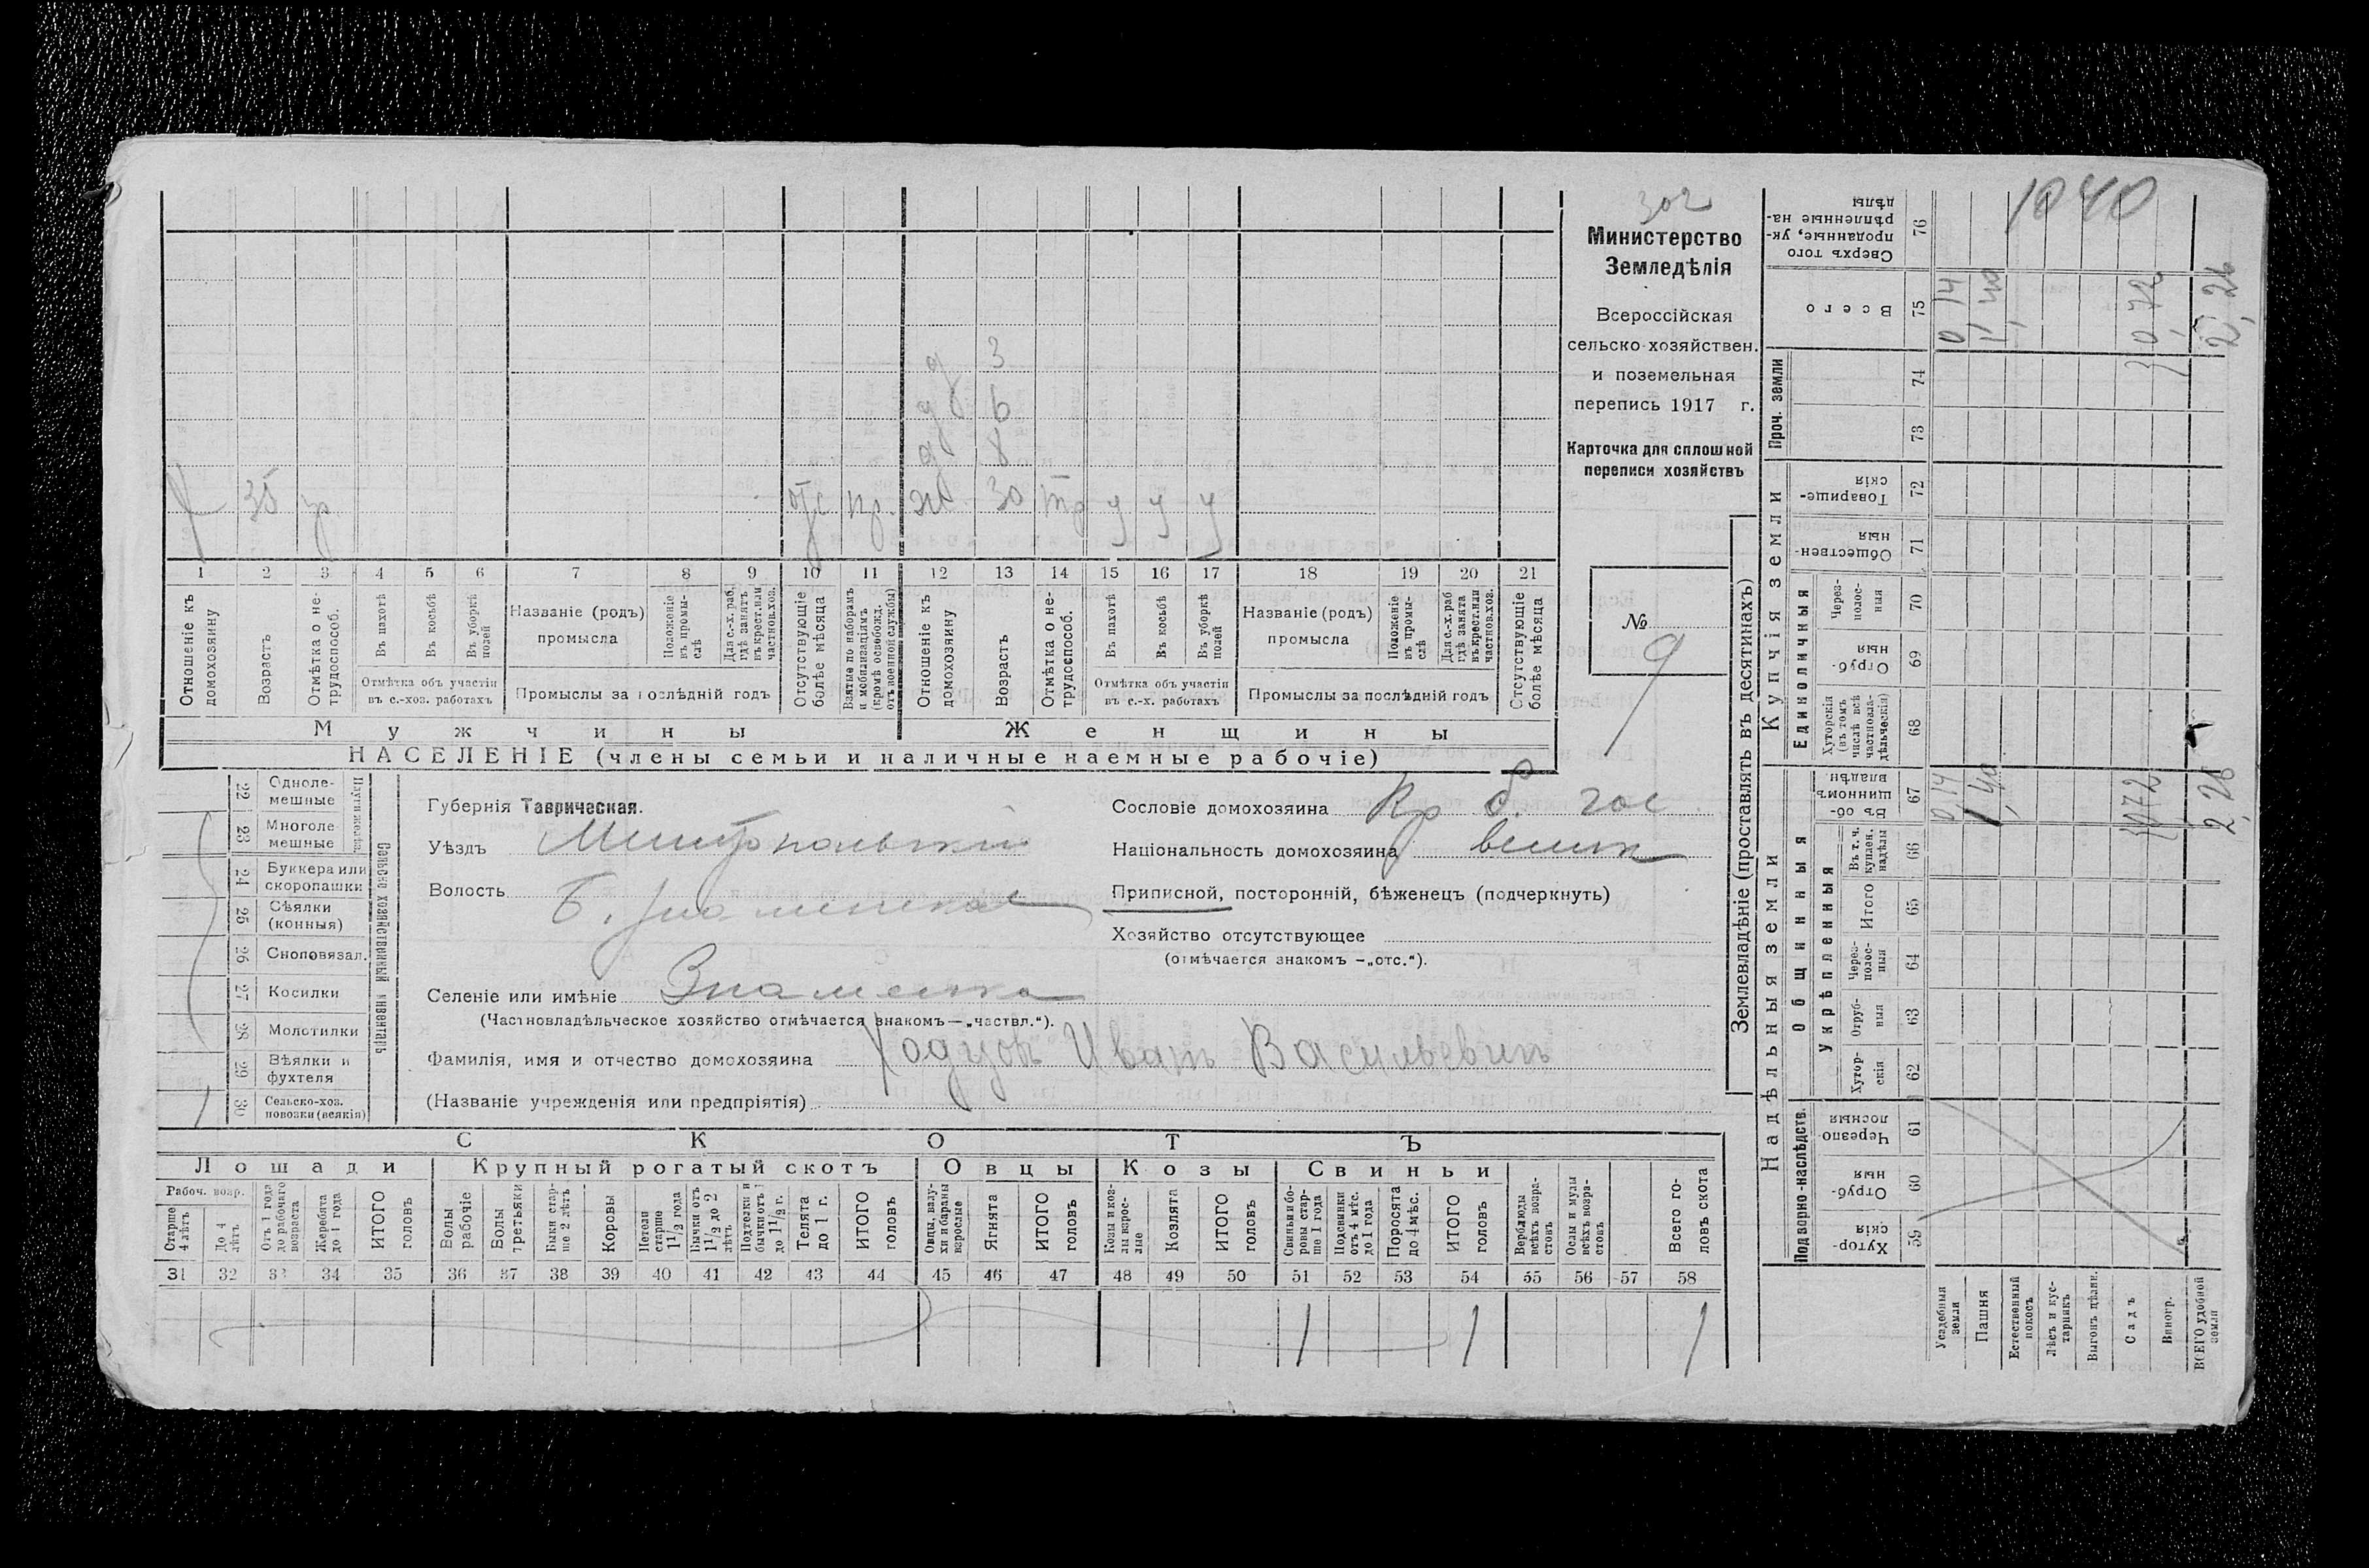 302
Министерство
Земледѣлія
Всероссійская
сельско-хозяйствен.
и поземельная
перепись 1917 г.
Карточка для сплошной
переписи хозяйствъ
№
9
3
6
8
35 отс 30 у у у
1 2 3 4 5 6 7 8 9 10 11 12 13 14 15 16 17 18 19 20 21
Отношеніе къ домохозяину
Возрастъ
Отмѣтка о не-трудоспособ.
Въ пахотѣ
Въ косьбѣ
Въ уборкѣ полей
Отмѣтка объ участіи въ с.-хоз. работахъ
Названіе (родъ) промысла
Положеніе въ промы-слѣ
Для с.-х. раб. гдѣ занятъ въ крест. или частнов. хоз.
Промыслы за послѣдній годъ
Отсутствующіе болѣе мѣсяца
Взятые по наборамъ и мобилизаціямъ (кромѣ освобожд. отъ военной службы)
Отношеніе къ домохозяину
Возрастъ
Отмѣтка о не-трудоспособ.
Въ пахотѣ
Въ косьбѣ
Въ уборкѣ полей
Отмѣтка объ участіи въ с.-х. работахъ
Названіе (родъ) промысла
Положеніе въ промы-слѣ
Для с.-х. раб гдѣ занята въ крест. или частнов. хоз.
Промыслы за послѣдній годъ
Отсутствующіе болѣе мѣсяца
Мужчины
Женщины
НАСЕЛЕНІЕ (члены семьи и наличные наемные рабочіе)
Сельско хозяйственный инвентарь
22 Одноле-мешные
23 Многоле-мешные
24 Буккера или скоропашки
25 Сѣялки (конныя)
26 Сноповязал.
27 Косилки
28 Молотилки
29 Вѣялки и фухтеля
30 Сельско-хоз. повозки (всякія)
1
Губернія Таврическая.
Уѣздъ Мелитопольский
Волость Б. Знаменская
Селеніе или имѣніе Знаменка
(Частновладѣльческое хозяйство отмѣчается знакомъ—„частвл.“).
Фамилія, имя и отчество домохозяина Ходусъ Иванъ Васильевичъ
(Названіе учрежденія или предпріятія)
Сословіе домохозяина Кр б. гос
Національность домохозяина велик
Приписной, посторонній, бѣженецъ (подчеркнуть)
Хозяйство отсутствующее
(отмѣчается знакомъ —„отс.“).
СКОТЪ
Лошади Крупный рогатый скотъ Овцы Козы Свиньи
Рабоч. возр.
Старше 4 лѣтъ
До 4 лѣтъ
Отъ 1 года до рабочаго возраста
Жеребята до 1 года
ИТОГО головъ
Волы рабочіе
Волы третьяки
Быки стар-ше 2 лѣтъ
Коровы
Нетели старше 1 1/2 года
Бычки отъ 1 1/2 до 2 лѣтъ
Подтелки и бычки отъ 1 до 1 1/2 г.
Телята до 1 г.
ИТОГО головъ
Овцы, валу-хи и бараны взрослые
Ягнята
ИТОГО головъ
Козы и коз-лы взрос-лые
Козлята
ИТОГО головъ
Свиньи и бо-ровы стар-ше 1 года
Подсвинки отъ 4 мѣс. до 1 года
Поросята до 4 мѣс.
ИТОГО головъ
Верблюды всѣхъ возра-стовъ
Ослы и мулы всѣхъ возра-стовъ
Всего го-ловъ скота
31 32 33 34 35 36 37 38 39 40 41 42 43 44 45 46 47 48 49 50 51 52 53 54 55 56 57 58
1 1 1
Землевладѣніе (проставлять въ десятинахъ)
Надѣльныя земли
Купчія земли
Проч. земли
Подворно-наслѣдств.
Общинныя
Укрѣпленныя
Единоличныя
Хутор-скія 59
Отруб-ныя 60
Черезпо лосныя 61
Хутор-скія 62
Отруб-ныя 63
Через-полос-ныя 64
Итого 65
Въ т. ч. куплен. надѣлы 66
Въ об-щинномъ владѣн 67
Хуторскія (въ томъ числѣ всѣ частновла-дѣльческія) 68
Отруб-ныя 69
Через-полос-ныя 70
Обществен-ныя 71
Товарище-скія 72
73
74
Всего 75
Сверхъ того проданные, ук-рѣпленные на-дѣлы 76
Усадебныя земли 0,14 0 14
Пашня 1,40 1,40
Естественный покосъ
Лѣсъ и кус-тарникъ
Выгонъ цѣлин.
Садъ 0,72 0,72
Виногр.
ВСЕГО удобной земли 2,26 2,26
1040